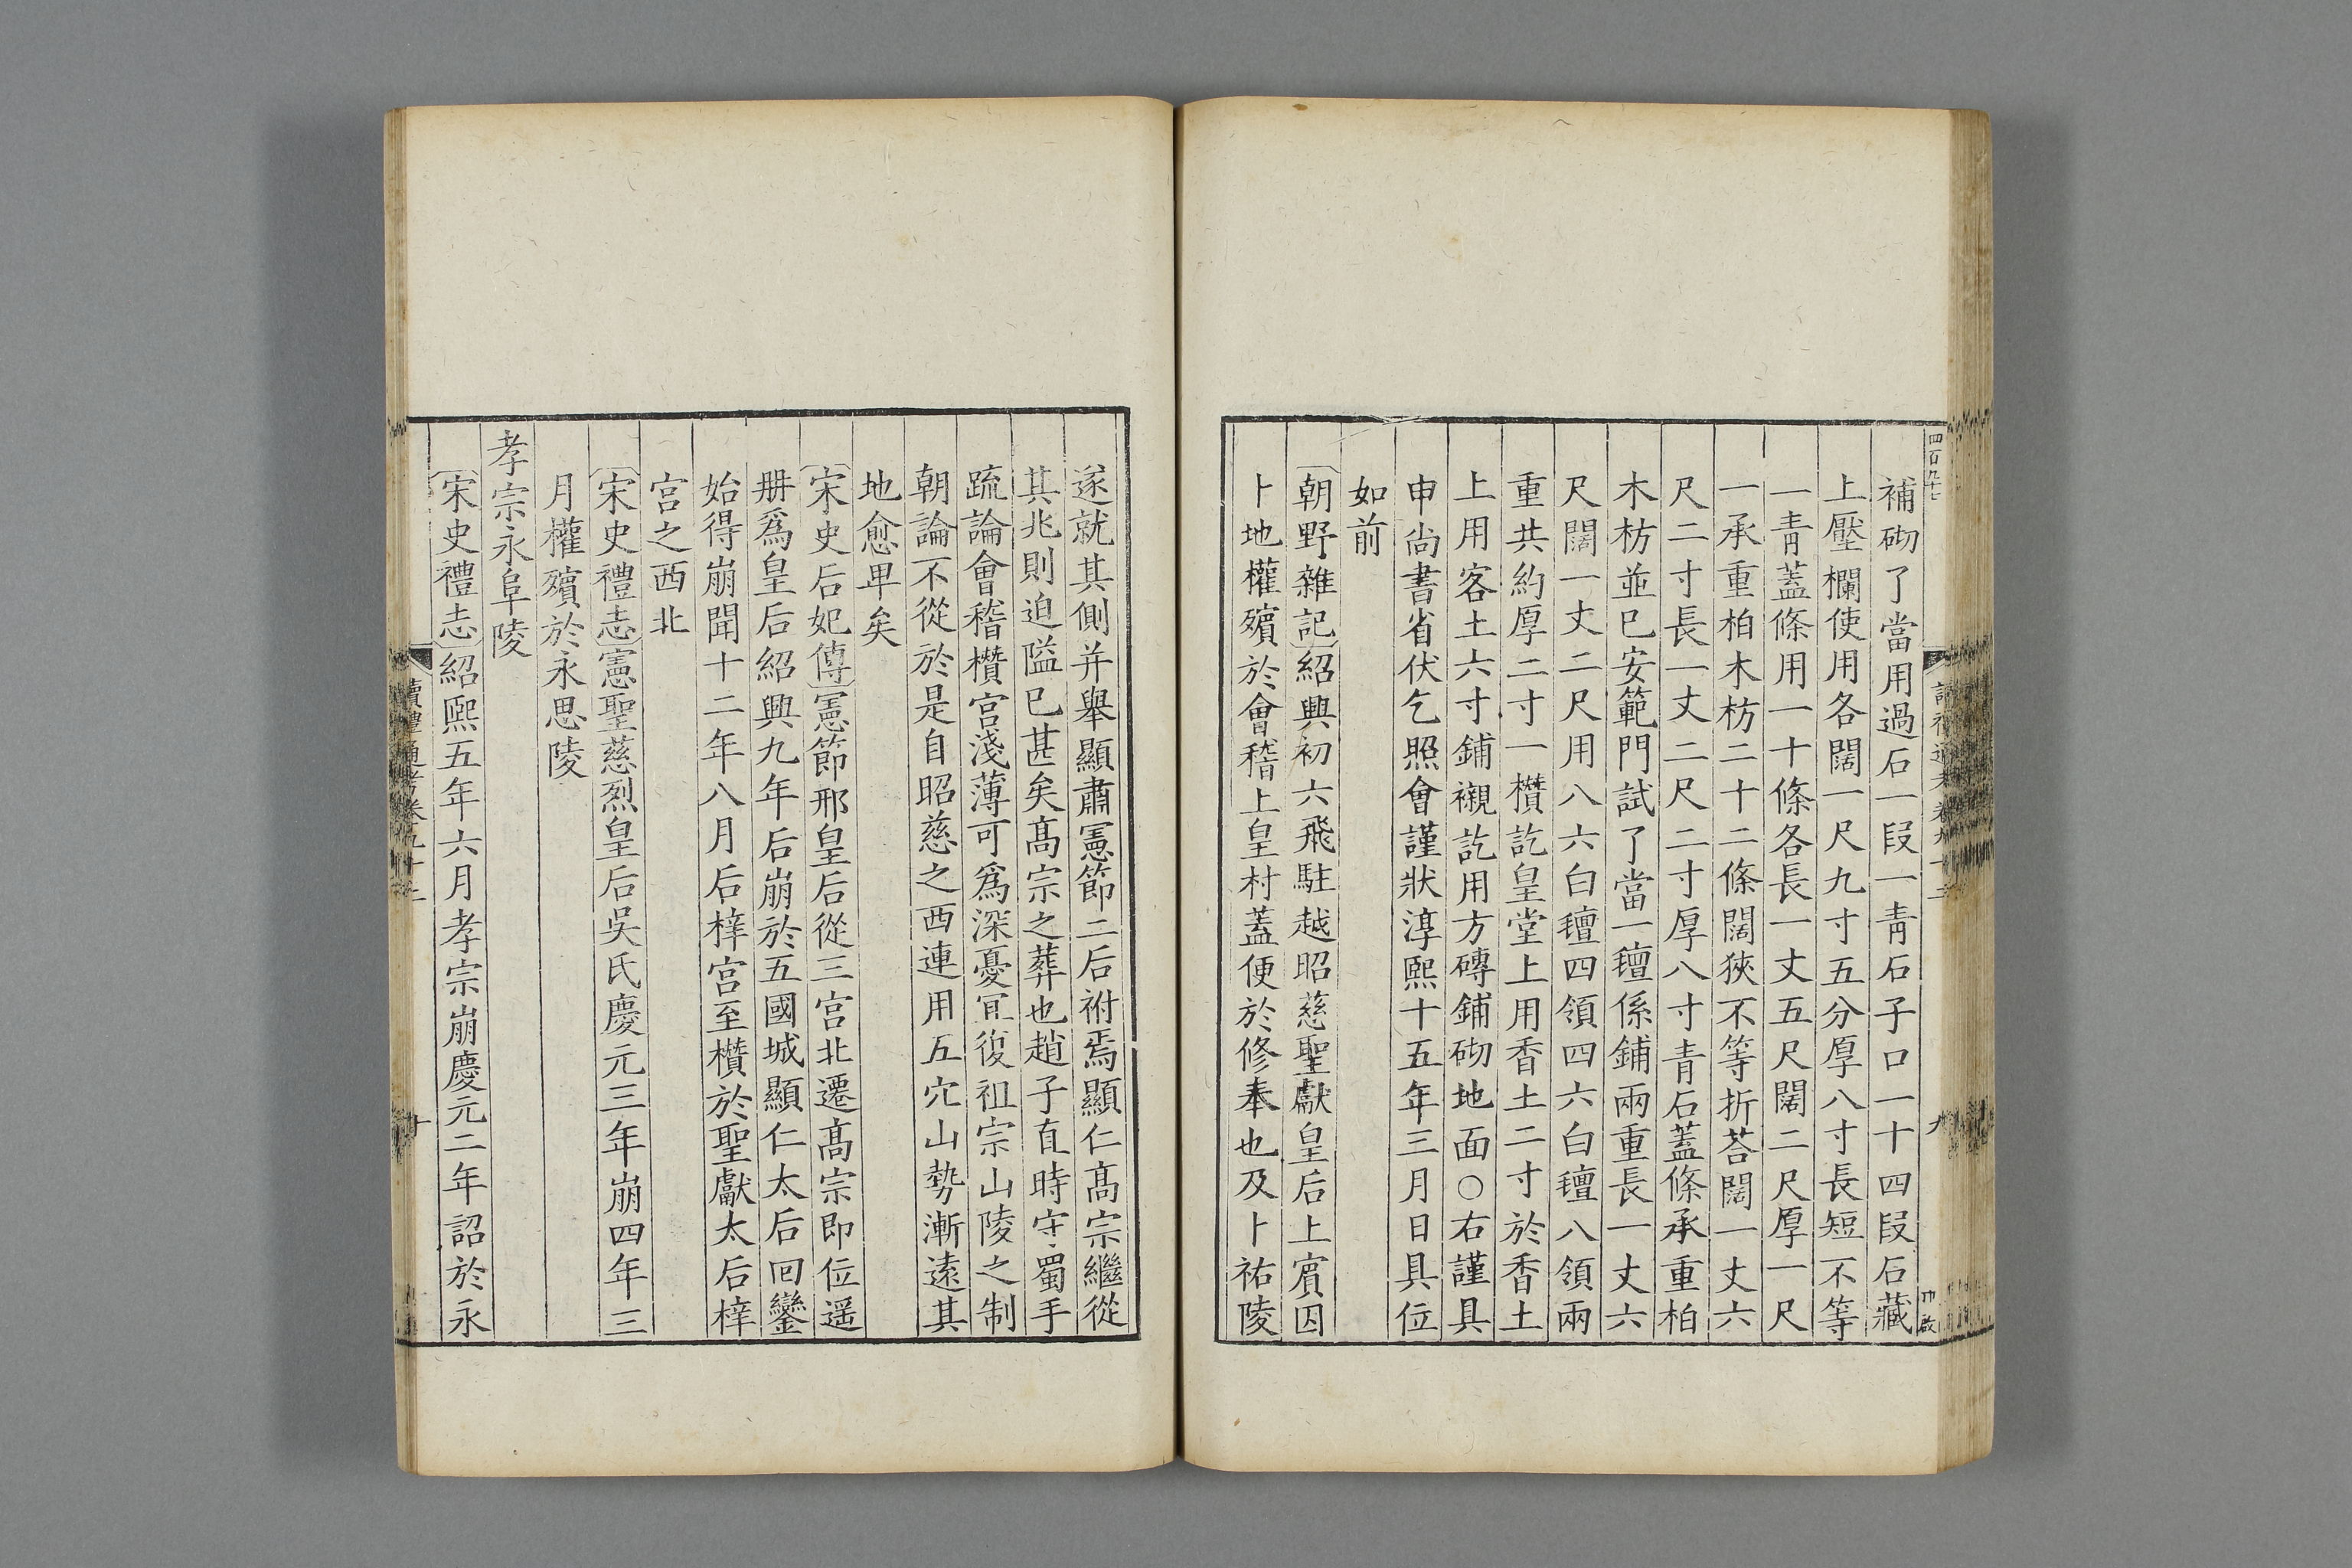 四百九十七
補砌了當用過石一段一青石子口一十四段石藏
上壓欄使用各闊一尺九寸五分厚八寸長短不等
一青蓋條用一十條各長一丈五尺闊二尺厚一尺
一承重柏木枋二十二條闊狹不等折荅闊一丈六
尺二寸長一丈二尺二寸厚八寸青石蓋條承重柏
木枋並已安範門試了當一氊係鋪兩重長一丈六
尺闊一丈二尺用八六白氊四領四六白氊八領兩
重共約厚二寸一欑訖皇堂上用香土二寸於香土
上用客土六寸鋪襯訖用方磚鋪砌地面○右謹具
申尚書省伏乞照會謹狀淳熙十五年三月日具位
如前
〔朝野雜記〕紹興初六飛駐越昭慈聖獻皇后上賓因
卜地權殯於會稽上皇村蓋便於修奉也及卜祐陵
遂就其側并舉顯肅憲節二后祔焉顯仁髙宗繼從
其兆則迫隘已甚矣髙宗之葬也趙子直時守蜀手
疏論會稽欑宫淺薄可爲深憂冝復祖宗山陵之制
朝論不從於是自昭慈之西連用五穴山勢漸遠其
地愈卑矣
〔宋史后妃傳〕憲節邢皇后從三宫北遷髙宗即位遥
册爲皇后紹興九年后崩於五國城顯仁太后回鑾
始得崩聞十二年八月后梓宫至欑於聖獻太后梓
宫之西北
〔宋史禮志〕憲聖慈烈皇后吳氏慶元三年崩四年三
月權殯於永思陵
孝宗永阜陵
〔宋史禮志〕紹熙五年六月孝宗崩慶元二年詔於永
讀禮通考卷九十三
十